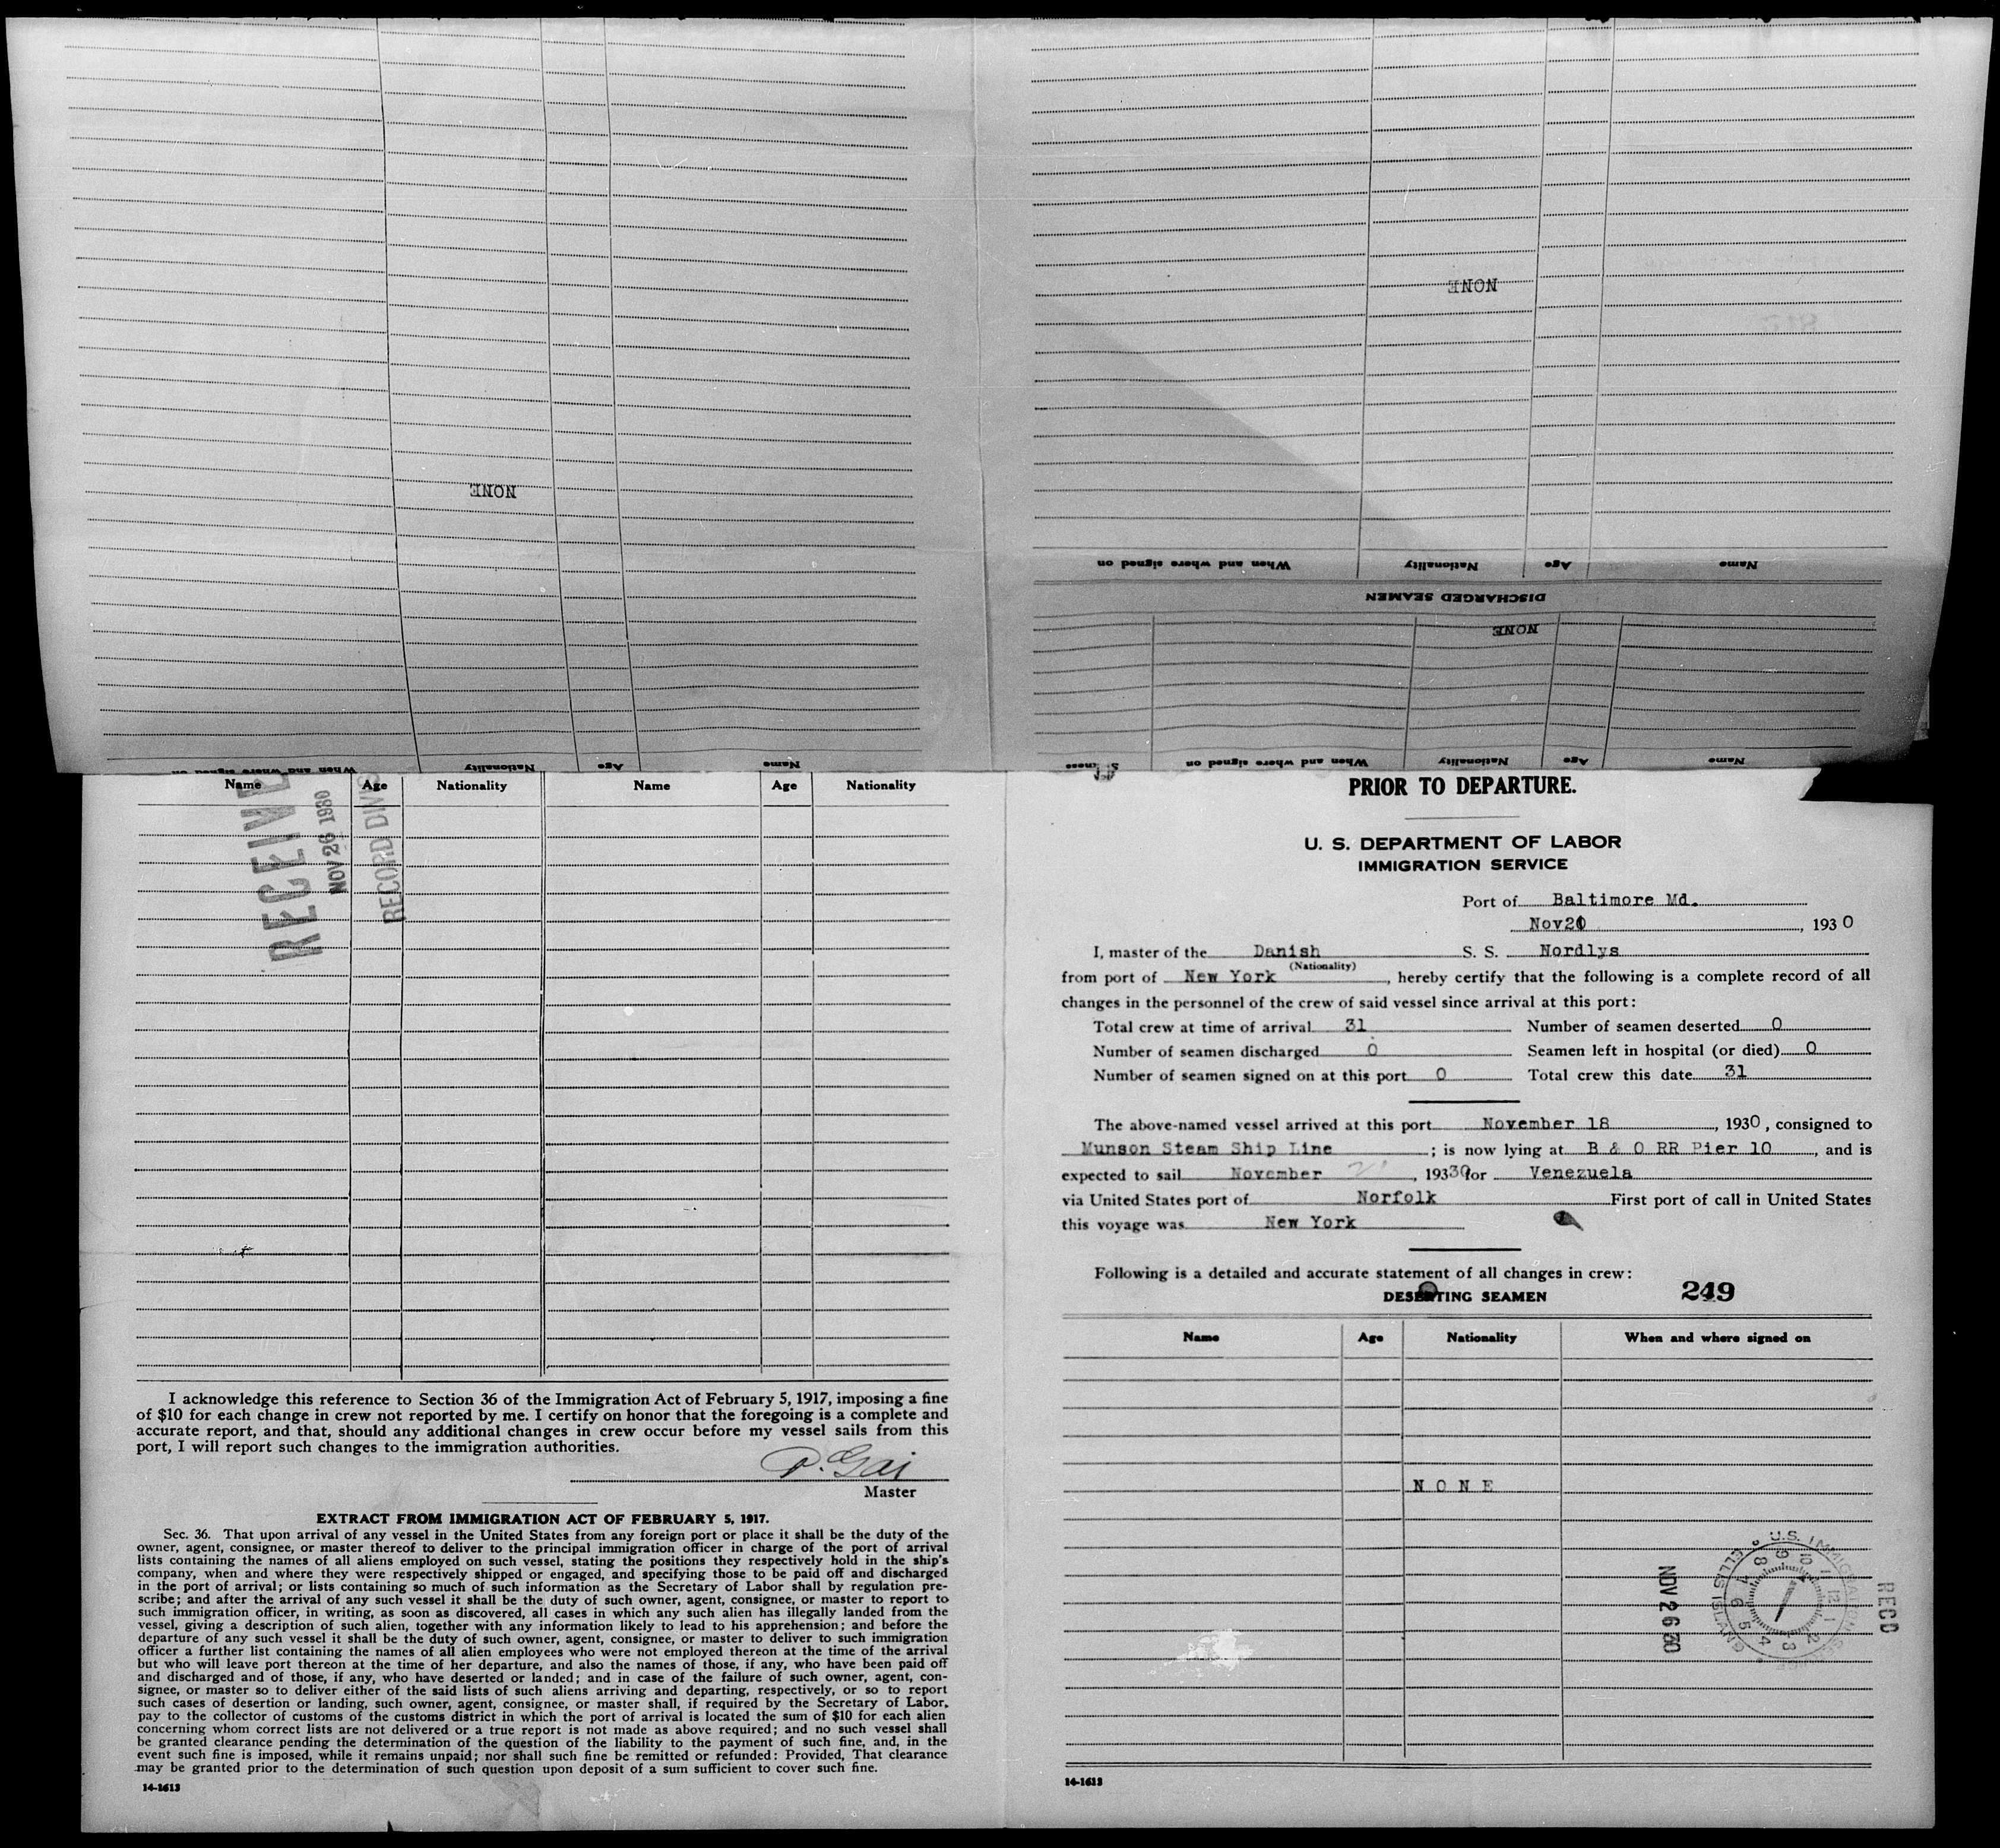 NONE
NONE
When and where signed on Nationality Age Name
DISCHARGED SEAMEN
NONE
When and where signed on Nationality Age Name
When and where signed on Nationality Age Name
Name Age Nationality Name Age Nationality
NOV 26 1930
I acknowledge this reference to Section 36 of the Immigration Act of February 5, 1917, imposing a fine
of $10 for each change in crew not reported by me. I certify on honor that the foregoing is a complete and
accurate report, and that, should any additional changes in crew occur before my vessel sails from this
port, I will report such changes to the immigration authorities.
P. Gai
Master
EXTRACT FROM IMMIGRATION ACT OF FEBRUARY 5, 1917.
Sec. 36. That upon arrival of any vessel in the United States from any foreign port or place it shall be the duty of the
owner, agent, consignee, or master thereof to deliver to the principal immigration officer in charge of the port of arrival
lists containing the names of all aliens employed on such vessel, stating the positions they respectively hold in the ship's
company, when and where they were respectively shipped or engaged, and specifying those to be paid off and discharged
in the port of arrival; or lists containing so much of such information as the Secretary of Labor shall by regulation pre-
scribe; and after the arrival of any such vessel it shall be the duty of such owner, agent, consignee, or master to report to
such immigration officer, in writing, as soon as discovered, all cases in which any such alien has illegally landed from the
vessel, giving a description of such alien, together with any information likely to lead to his apprehension; and before the
departure of any such vessel it shall be the duty of such owner, agent, consignee, or master to deliver to such immigration
officer a further list containing the names of all alien employees who were not employed thereon at the time of the arrival
but who will leave port thereon at the time of her departure, and also the names of those, if any, who have been paid off
and discharged and of those, if any, who have deserted or landed; and in case of the failure of such owner, agent, con-
signee, or master so to deliver either of the said lists of such aliens arriving and departing, respectively, or so to report
such cases of desertion or landing, such owner, agent, consignee, or master shall, if required by the Secretary of Labor,
pay to the collector of customs of the customs district in which the port of arrival is located the sum of $10 for each alien
concerning whom correct lists are not delivered or a true report is not made as above required; and no such vessel shall
be granted clearance pending the determination of the question of the liability to the payment of such fine, and, in the
event such fine is imposed, while it remains unpaid; nor shall such fine be remitted or refunded: Provided, That clearance
may be granted prior to the determination of such question upon deposit of a sum sufficient to cover such fine.
14-1613
PRIOR TO DEPARTURE.
U. S. DEPARTMENT OF LABOR
IMMIGRATION SERVICE
Port of Baltimore Md.
Nov20, 1930
I, master of the Danish S. S. Nordlys
(Nationality)
from port of New York, hereby certify that the following is a complete record of all
changes in the personnel of the crew of said vessel since arrival at this port:
Total crew at time of arrival 31 Number of seamen deserted 0
Number of seamen discharged 0 Seamen left in hospital (or died) 0
Number of seamen signed on at this port 0 Total crew this date 31
The above-named vessel arrived at this port November 18, 1930, consigned to
Munson Steam Ship Line; is now lying at B & O RR Pier 10, and is
expected to sail November 21, 19330 for Venezuela
via United States port of Norfolk First port of call in United States
this voyage was New York
Following is a detailed and accurate statement of all changes in crew:
DESERTING SEAMEN 249
Name Age Nationality When and where signed on
NONE
U.S. IMMIGRATION SERVICE
ELLIS ISLAND
NOV 26 30
RECD
14-1613